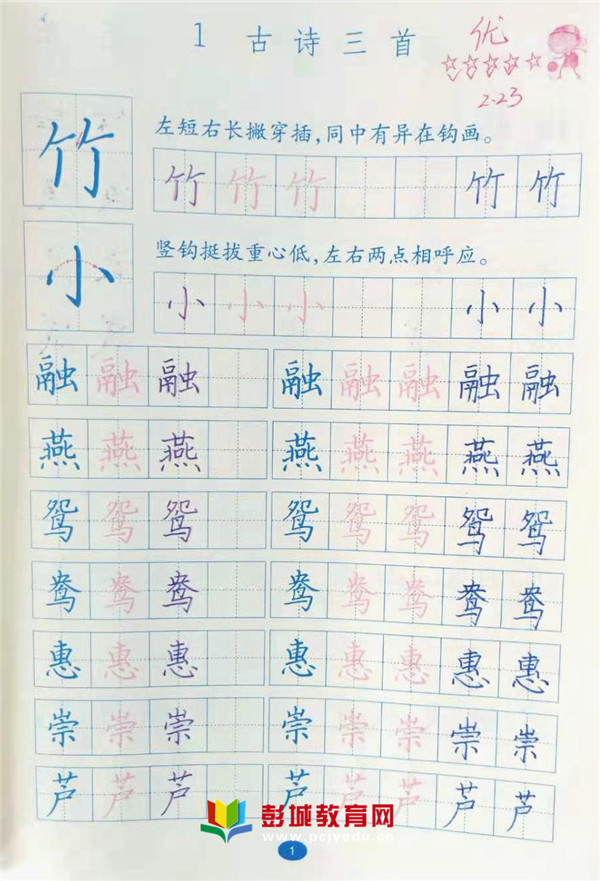 1 古诗三首
优
2.23
竹
左短右长撇穿插,同中有异在钩画。
竹 竹 竹 竹 竹
小
竖钩挺拔重心低,左右两点相呼应。
小 小 小 小 小
融 融 融 融 融 融 融 融
燕 燕 燕 燕 燕 燕 燕 燕
鸳 鸳 鸳 鸳 鸳 鸳 鸳 鸳
鸯 鸯 鸯 鸯 鸯 鸯 鸯 鸯
惠 惠 惠 惠 惠 惠 惠 惠
崇 崇 崇 崇 崇 崇 崇 崇
芦 芦 芦 芦 芦 芦 芦 芦
彭城教育网
www.pcjyedu.cn
1